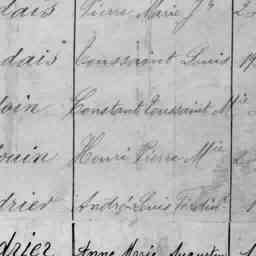 dais Pierre Marie Jh 2
dais Toussaint Louis 19
doin Constant Toussaint Mie
douin Henri Pierre Mie 2
drier André Louis Ferdind 1
drier Anne Marie Augustine